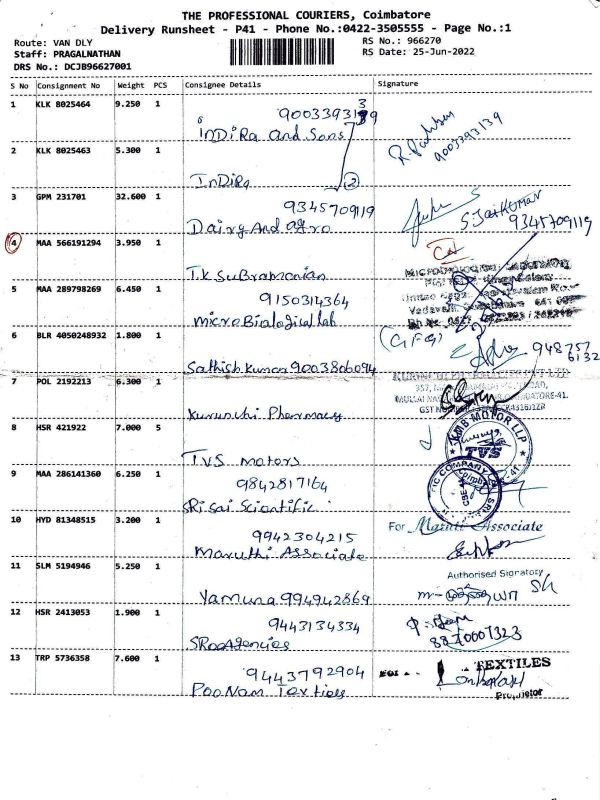 THE PROFESSIONAL COURIERS, Coimbatore
Delivery Runsheet - P41 - Phone No.:0422-3505555 - Page No.:1
Route: VAN DLY
RS No.: 966270
Staff: PRAGALNATHAN
RS Date: 25-Jun-2022
DRS No.: DCJB96627001
S No Consignment No Weight PCS Consignee Details Signature
1 KLK 8025464 9.250 1
InDiRa And Sons
9003393139
2 KLK 8025463 5.300 1
InDiRa 2
3 GPM 231701 32.600 1 9345709119
Dairy And Agro
S. Jaikumar
9345709119
4 MAA 566191294 3.950 1
T.K SuBramanian
5 MAA 289798269 6.450 1 9150314364
MicroBiological lab
6 BLR 4050248932 1.800 1
Sathish Kumar 9003806094
948757
6132
7 POL 2192213 6.300 1
Kurunchi Pharmacy
8 HSR 421922 7.000 5
TVS motors
KMB MOTOR LLP
TVS
9 MAA 286141360 6.250 1 9842817164
SRi Sai Scientific
10 HYD 81348515 3.200 1 9942304215
Maruthi Associate
For Maruti Associate
Authorised Signatory
11 SLM 5194946 5.250 1
Yamuna 994942869
12 HSR 2413053 1.900 1 9443134334
SRee Agencies
8870007323
13 TRP 5736358 7.600 1 9443792904
PooNam Textiles
TEXTILES
Proprietor